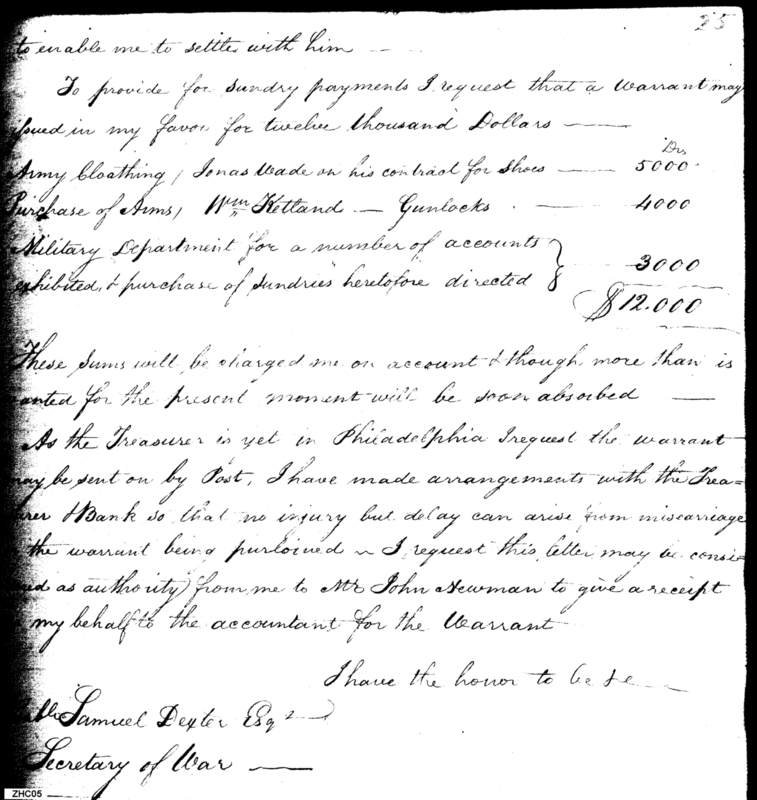 35
to enable me to settle with him —
To provide for sundry payments I request that a Warrant may
issued in my favor for twelve thousand Dollars —
Drs
Army Cloathing, Jonas Wade on his contract for Shoes — 5000
Purchase of Arms, Wm Ketland — Gunlocks — 4000
Military Department for a number of accounts
exhibited, & purchase of Sundries heretofore directed } 3000
$12.000
These Sums will be charged me on account & though more than is
wanted for the present moment will be soon absorbed —
As the Treasurer is yet in Philadelphia I request the warrant
may be sent on by Post, I have made arrangements with the Trea=
urer & Bank so that no injury but delay can arise from miscarriage
the warrant being purloined — I request this letter may be consi=
ed as authority from me to Mr John Newman to give a receipt
my behalf to the accountant for the Warrant
I have the honor to be &c —
ble Samuel Dexter Esqr —
Secretary of War —
ZHC05